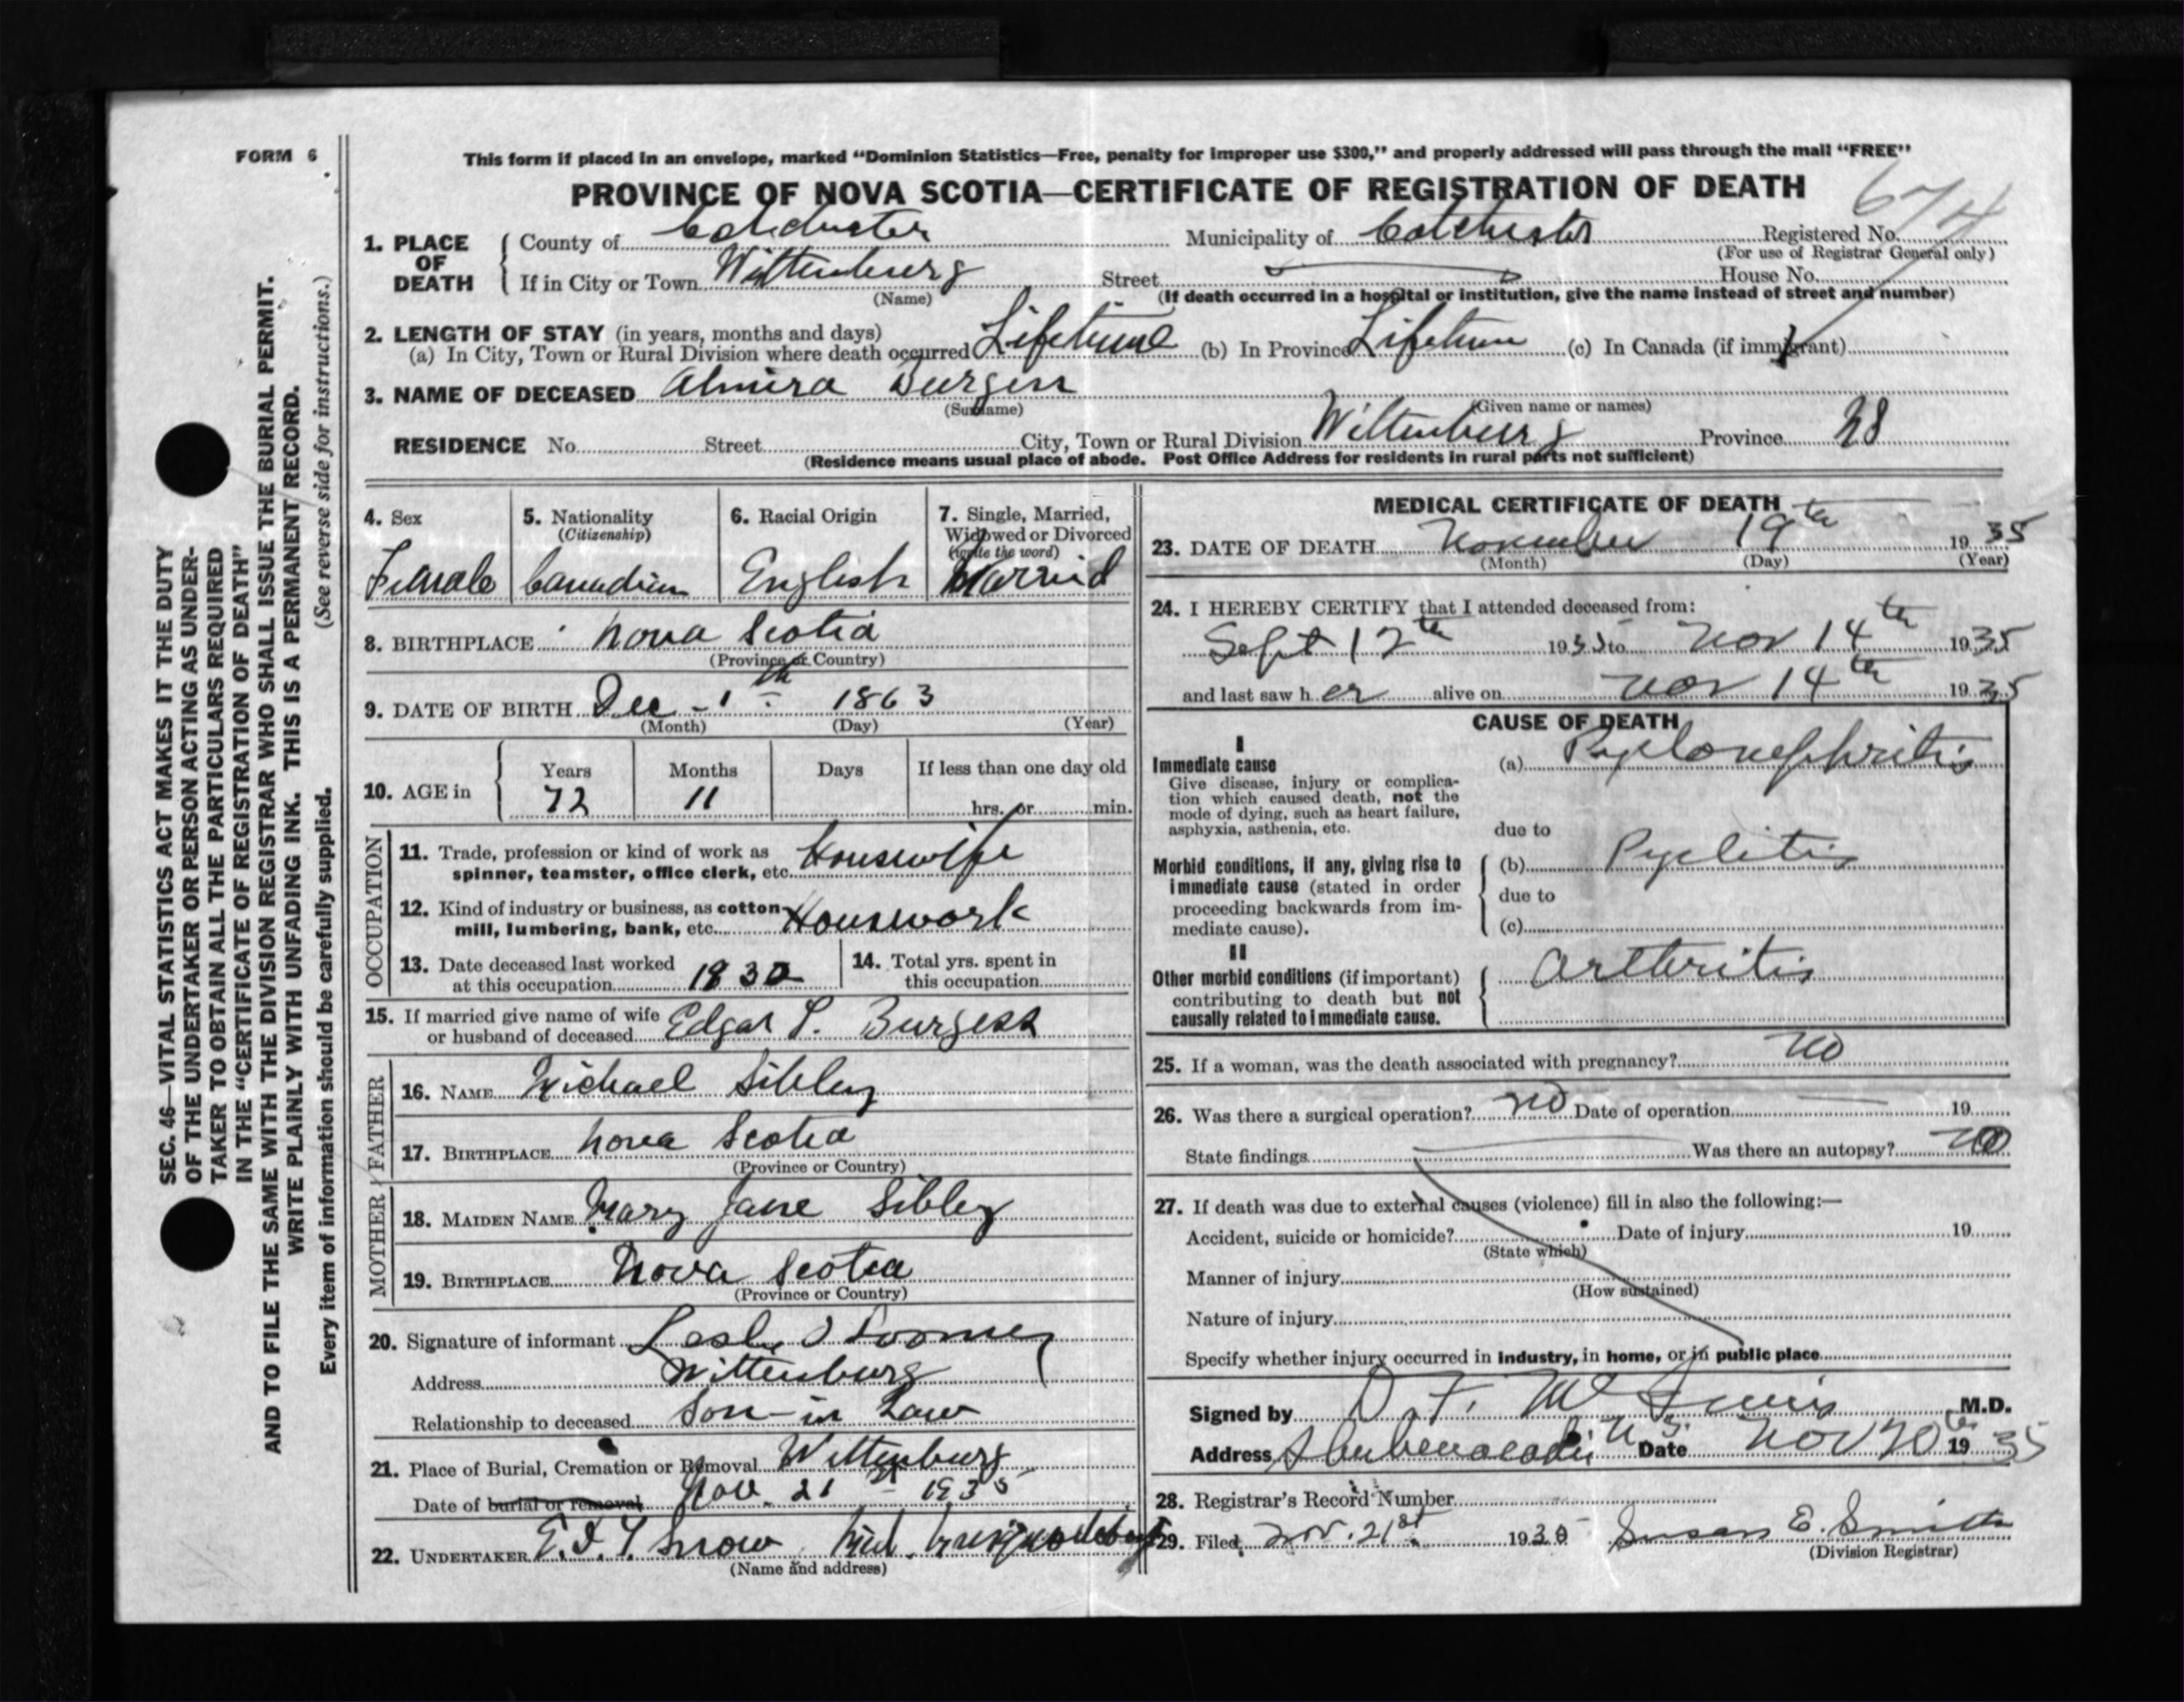 FORM 6
This form if placed in an envelope, marked “Dominion Statistics—Free, penalty for improper use $300,” and properly addressed will pass through the mail “FREE”
PROVINCE OF NOVA SCOTIA—CERTIFICATE OF REGISTRATION OF DEATH
674
1. PLACE OF DEATH County of Colchester Municipality of Colchester Registered No.
(For use of Registrar General only)
If in City or Town Wittenburg Street House No.
(Name) (If death occurred in a hospital or institution, give the name instead of street and number)
2. LENGTH OF STAY (in years, months and days)
(a) In City, Town or Rural Division where death occurred Lifetime (b) In Province Lifetime (c) In Canada (if immigrant)
3. NAME OF DECEASED Almira Burgess
(Surname) (Given name or names)
RESIDENCE No. Street City, Town or Rural Division Wittenburg Province NS
(Residence means usual place of abode. Post Office Address for residents in rural parts not sufficient)
4. Sex 5. Nationality 6. Racial Origin 7. Single, Married,
(Citizenship) Widowed or Divorced
(write the word)
Female Canadian English Married
8. BIRTHPLACE Nova Scotia
(Province or Country)
9. DATE OF BIRTH Dec - 1th 1863
(Month) (Day) (Year)
10. AGE in Years Months Days If less than one day old
72 11 hrs. or min.
OCCUPATION
11. Trade, profession or kind of work as
spinner, teamster, office clerk, etc. Housewife
12. Kind of industry or business, as cotton
mill, lumbering, bank, etc. Housework
13. Date deceased last worked 14. Total yrs. spent in
at this occupation 1932 this occupation
15. If married give name of wife
or husband of deceased Edgar P. Burgess
FATHER
16. NAME Michael Sibley
17. BIRTHPLACE Nova Scotia
(Province or Country)
MOTHER
18. MAIDEN NAME Mary Jane Sibley
19. BIRTHPLACE Nova Scotia
(Province or Country)
20. Signature of informant
Address Wittenburg
Relationship to deceased Son-in Law
21. Place of Burial, Cremation or Removal Wittenburg
Date of burial or removal Nov. 21st 1935
22. UNDERTAKER Snow
(Name and address)
MEDICAL CERTIFICATE OF DEATH
23. DATE OF DEATH November 19th 1935
(Month) (Day) (Year)
24. I HEREBY CERTIFY that I attended deceased from:
Sept 12th 1935 to Nov 14th 1935
and last saw her alive on Nov 14th 1935
CAUSE OF DEATH
I
Immediate cause (a) Pyelonephritis
Give disease, injury or complica-
tion which caused death, not the
mode of dying, such as heart failure,
asphyxia, asthenia, etc. due to
Morbid conditions, if any, giving rise to (b) Pyelitis
immediate cause (stated in order
proceeding backwards from im- due to
mediate cause). (c)
II
Other morbid conditions (if important) Arthritis
contributing to death but not
causally related to immediate cause.
25. If a woman, was the death associated with pregnancy? No
26. Was there a surgical operation? No Date of operation 19
State findings Was there an autopsy? No
27. If death was due to external causes (violence) fill in also the following:—
Accident, suicide or homicide? Date of injury 19
(State which)
Manner of injury
(How sustained)
Nature of injury
Specify whether injury occurred in industry, in home, or in public place
Signed by D. F. M.D.
Address Shubenacadie N.S. Date Nov 20th 1935
28. Registrar's Record Number
29. Filed Nov. 21st 1935 Susan E. Smith
(Division Registrar)
SEC. 46—VITAL STATISTICS ACT MAKES IT THE DUTY
OF THE UNDERTAKER OR PERSON ACTING AS UNDER-
TAKER TO OBTAIN ALL THE PARTICULARS REQUIRED
IN THE “CERTIFICATE OF REGISTRATION OF DEATH”
AND TO FILE THE SAME WITH THE DIVISION REGISTRAR WHO SHALL ISSUE THE BURIAL PERMIT.
WRITE PLAINLY WITH UNFADING INK. THIS IS A PERMANENT RECORD.
Every item of information should be carefully supplied. (See reverse side for instructions.)